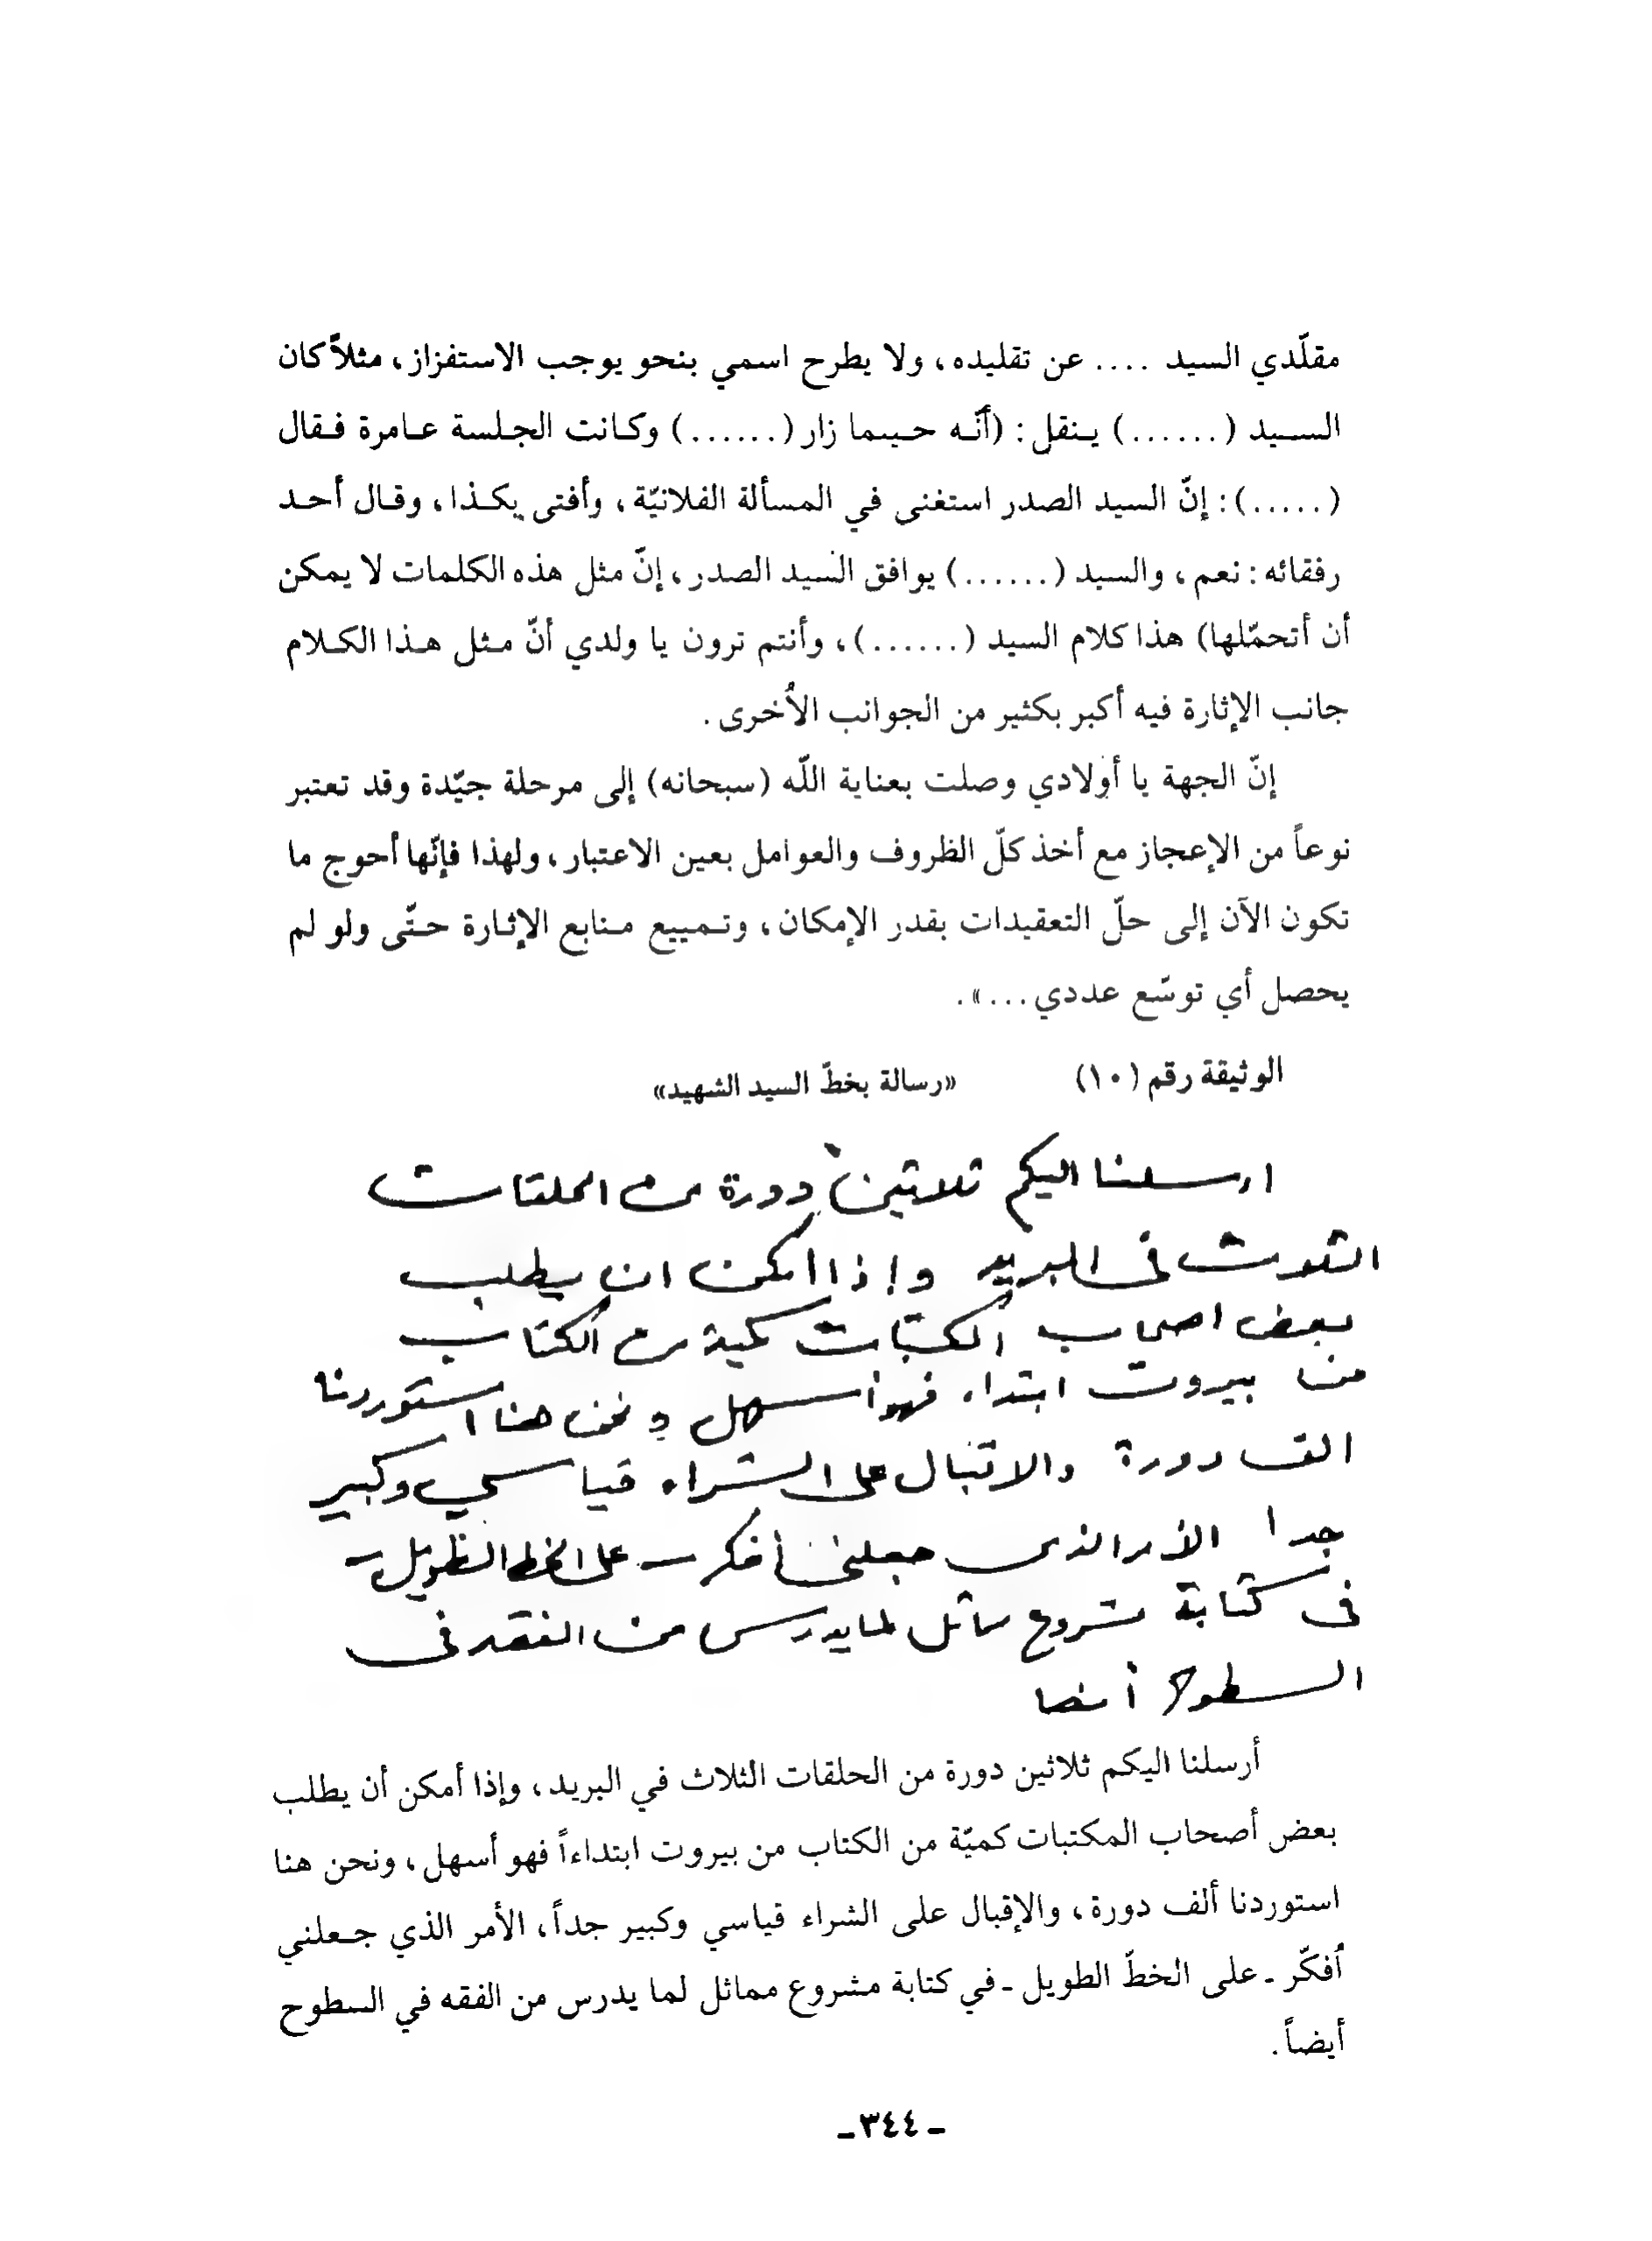 مقلّدي السيد .... عن تقليده، ولا يطرح اسمي بنحو يوجب الاستفزاز، مثلاً كان
السيد (......) ينقل: (أنّه حينما زار (......) وكانت الجلسة عامرة فقال
(.....): إنّ السيد الصدر استغنى في المسألة الفلانيّة، وأفتى بكذا، وقال أحد
رفقائه: نعم، والسيد (......) يوافق السيد الصدر، إنّ مثل هذه الكلمات لا يمكن
أن أتحمّلها) هذا كلام السيد (......)، وأنتم ترون يا ولدي أنّ مثل هذا الكلام
جانب الإثارة فيه أكبر بكثير من الجوانب الأُخرى.
إنّ الجهة يا أولادي وصلت بعناية اللّه (سبحانه) إلى مرحلة جيّدة وقد تعتبر
نوعاً من الإعجاز مع أخذ كلّ الظروف والعوامل بعين الاعتبار، ولهذا فإنّها أحوج ما
تكون الآن إلى حلّ التعقيدات بقدر الإمكان، وتمييع منابع الإثارة حتّى ولو لم
يحصل أي توسّع عددي...».
الوثيقة رقم (١٠) «رسالة بخطّ السيد الشهيد»
ارسلنا اليكم ثلاثين دورة من الحلقات
الثلاث في البريد واذا امكن ان يطلب
بعض اصحاب المكتبات كمية من الكتاب
من بيروت ابتداء فهو أسهل ونحن هنا استوردنا
الف دورة والاقبال على الشراء قياسي وكبير
جدا الأمر الذي جعلني أفكر - على الخط الطويل -
في كتابة مشروع مماثل لما يدرس من الفقه في
السطوح أيضا
أرسلنا اليكم ثلاثين دورة من الحلقات الثلاث في البريد، وإذا أمكن أن يطلب
بعض أصحاب المكتبات كميّة من الكتاب من بيروت ابتداءاً فهو أسهل، ونحن هنا
استوردنا ألف دورة، والإقبال على الشراء قياسي وكبير جداً، الأمر الذي جعلني
أُفكّر ـ على الخطّ الطويل ـ في كتابة مشروع مماثل لما يدرس من الفقه في السطوح
أيضاً.
ـ ٣٤٤ ـ